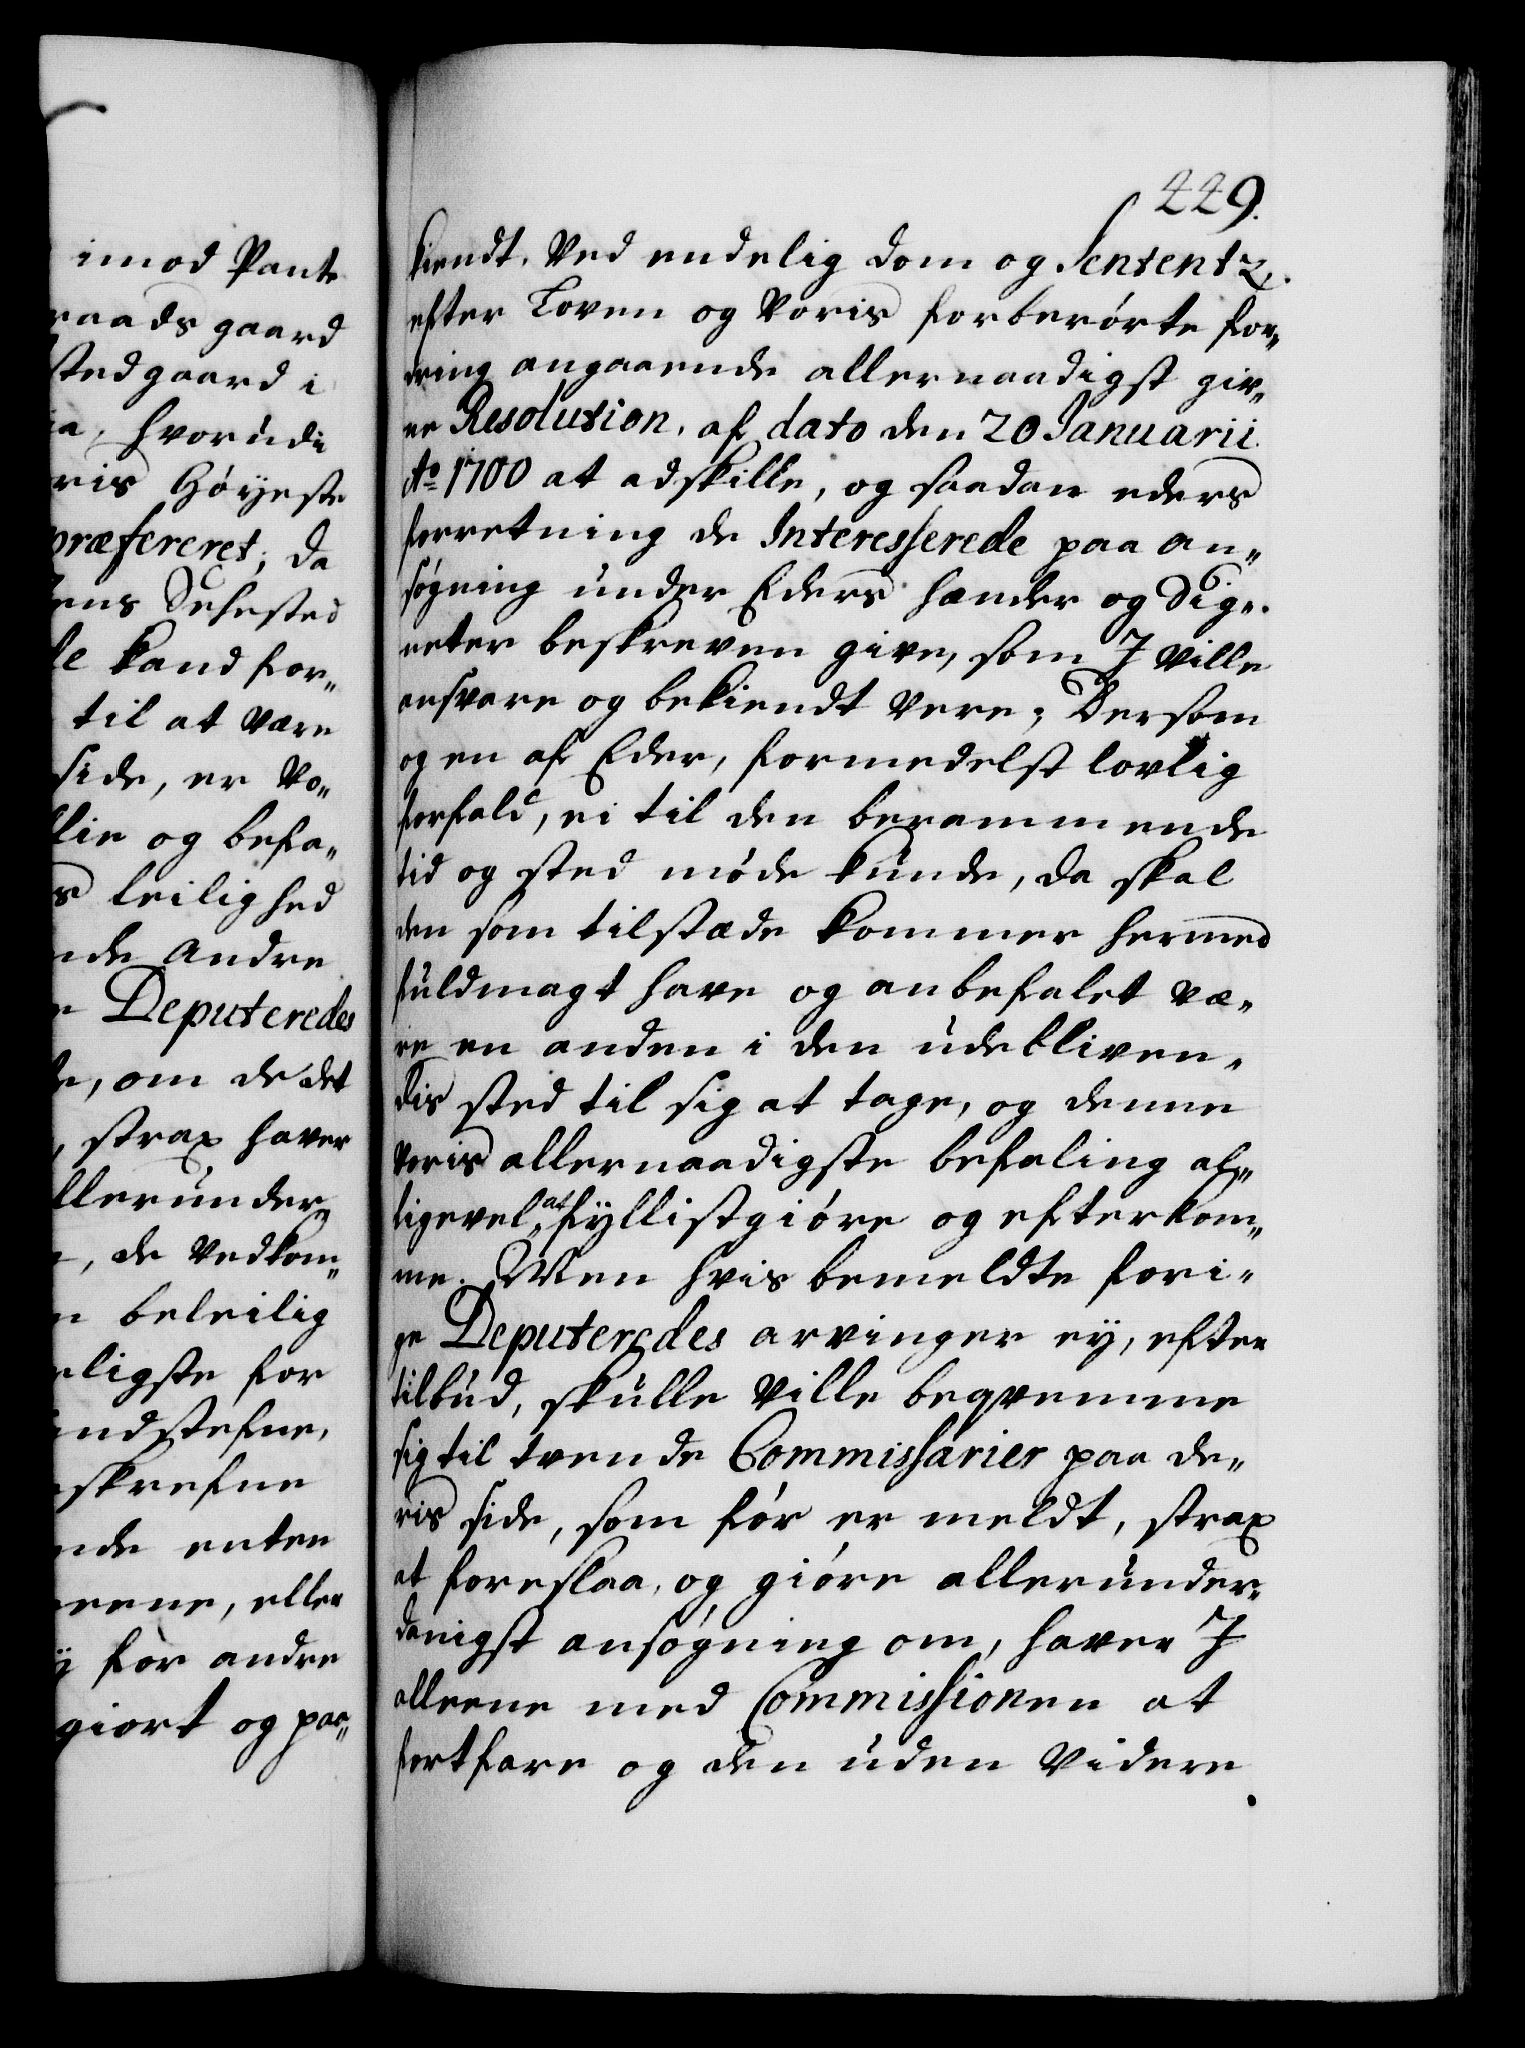 imod Pante
raads gaard
stedgaard i
ia, hvorudi
vris Høyeste
præfereret; da
Jens Sehested
le kand for„
til at være
side, er vo„
llie og befa„
s leilighed
nde Andre
e Deputeredes
de, om de det
, strax haver
llerunder„
, de vedkom„
n beleilig
eligste for
indstefne,
skrefne
nde enten
reene, eller
y før andre
giort og paa„
449.
kiendt. Ved endelig dom og Sententz,
efter Loven og Voris forberørte for„
dring angaaende allernaadigst giv„
ne Resolution, af dato den 20 Januarii
Ao 1700 at adskille, og saadan eders
forretning de Interesserede paa an„
søgning under Eders hænder og Sig„
neter beskreven give, som J ville
ansvare og bekiendt vere; Dersom
og en af Eder, formedelst lovlig
forfald, ei til den berammende
tid og sted møde kunde, da skal
den som tilstæde kommer hermed
fuldmagt have og anbefalet væ„
re en anden i den udebliven„
dis sted til sig at tage, og denne
Voris allernaadigste befaling al„
ligevel, at fyllistgiøre og efterkom„
me. Men hvis bemeldte fori„
ge Deputeredes arvinger ey, efter
tilbud, skulle ville beqvemme
sig til tvende Commissarier paa de„
ris side, som før er meldt, strax
at foreslaa, og giøre allerunder„
danigst ansøgning om, haver J
alleene med Commissionen at
fortfare og den uden videre